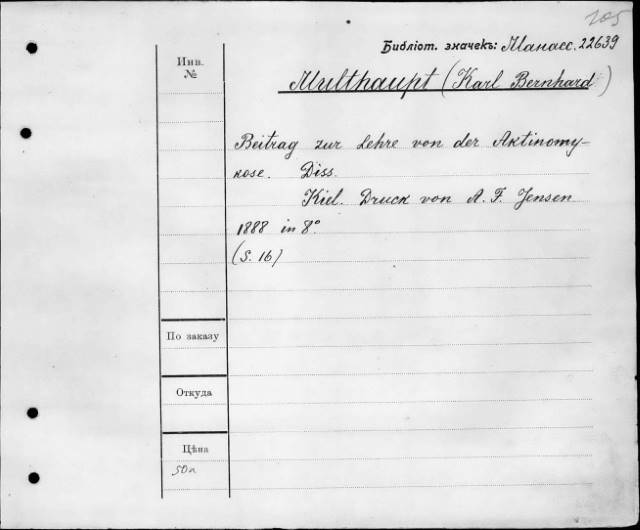 205
Библіот. значекъ: Манасс. 22639
Инв.
№
Multhaupt (Karl Bernhard)
Beitrag zur Lehre von der Aktinomy-
kose. Diss.
Kiel. Druck von A. F. Jensen
1888 in 8°
(S. 16)
По заказу
Откуда
Цѣна
50л